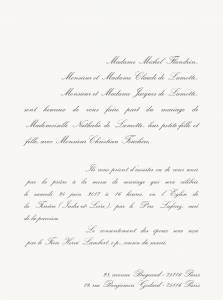 Madame Michel Flandrin,
Monsieur et Madame Claude de Lamotte,
Monsieur et Madame Jacques de Lamotte,
sont heureux de vous faire part du mariage de
Mademoiselle Nathalie de Lamotte, leur petite-fille et
fille, avec Monsieur Christian
Ils vous prient d'assister ou de vous unir
par la prière à la messe de mariage qui sera célébrée
le samedi 24 juin 1977 à 16 heures, en l'Eglise de
la (Indre-et-Loire), par le Père curé
de la paroisse.
Le consentement des époux sera reçu
par le Père Hervé o.p., cousin du marié.
avenue 75116 Paris
19, rue Benjamin Godard - 75116 Paris